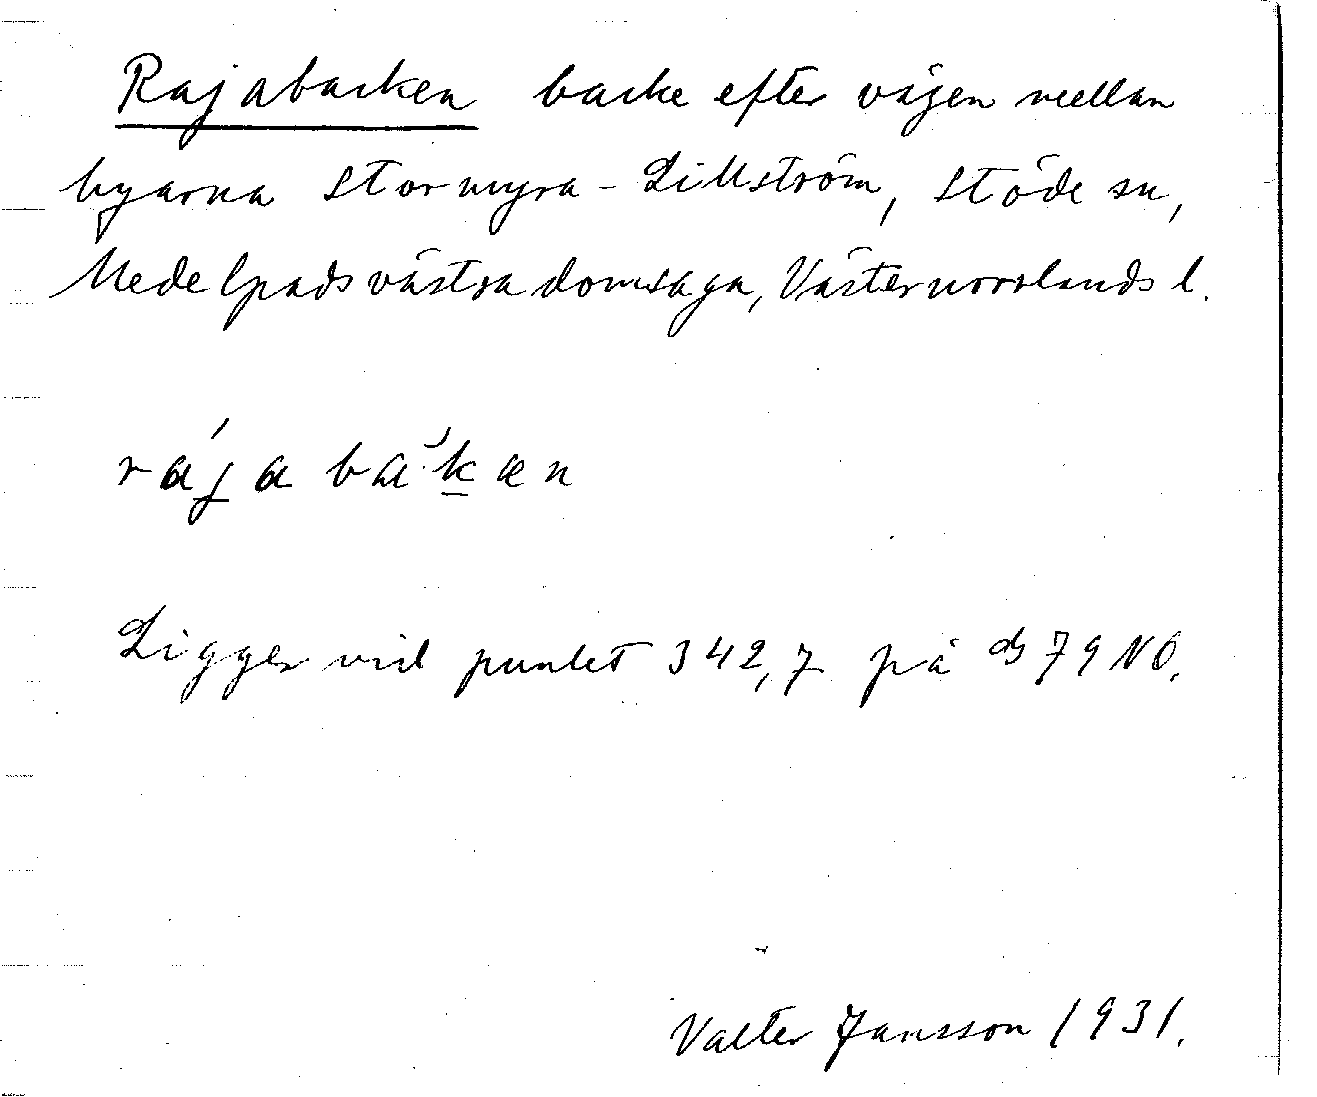 Rajabacken backe efter vägen mellan
byarna Stormyra - Lillström, Stöde sn,
Medelpads västra domsaga, Västernorrlands l.
rája bàkæn
Ligger vid punkt 342,7 på db 79 NO.
Valter Jansson 1931.